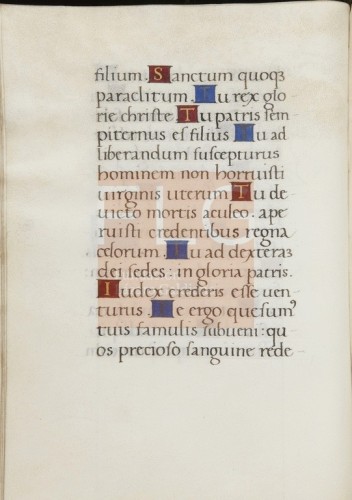 filium. Sanctum quoqȝ
paraclitum. Tu rex glo
rie christe Tu patris sem
piternus es filius Tu ad
liberandum suscepturus
hominem non horruisti
virginis uterum Tu de
uicto mortis aculeo. ape
ruisti credentibus regna
celorum. Tu ad dexteraȝ
dei sedes: in gloria patris.
Iudex crederis esse uen
turus. Te ergo quesumꝰ
tuis famulis subueni: qu
os precioso sanguine rede
FLG